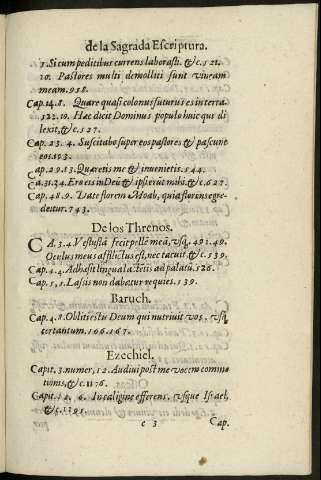 de la Sagrada Escriptura.
5. Si cum peditibus currens laborasti. &c. 521.
10. Pastores multi demolliti sunt vineam
meam. 958.
Cap. 14. 8. Quare quasi colonus futurus es in terra.
122. 10. Hæc dicit Dominus populo huic qui di
lexit, &c. 527.
Cap. 23. 4. Suscitabo super eos pastores & pascunt
eos. 193.
Cap. 29. 13. Quæretis me & invenietis. 544.
Ca. 31. 34. Ero eis in Deũ & ipsi erũt mihi. &c. 627.
Cap. 48. 9. Date florem Moab, quia florens egre-
dietur. 743.
De los Threnos.
CA. 3. 4. Vestustã fecit pellẽ meã, vsq. 491. 49.
Oculus meus afflictus est, nec tacuit, & c. 539.
Cap. 4. 4. Adhæsit lingua lactẽtis ad palatũ. 526.
Cap. 5, 5. Lassis non dabatur requies. 539.
Baruch.
Cap. 4. 8. Obliti estis Deum qui nutriuit vos, vsq;
tortantum. 106. 167.
Ezechiel.
Capit. 3. numer, 12. Audivi post me vocem commo
tionis, & c. 1176.
Capit. 12. 6. In caligine efferens, vsque Israel,
& c. 1191.
c 3 Cap.